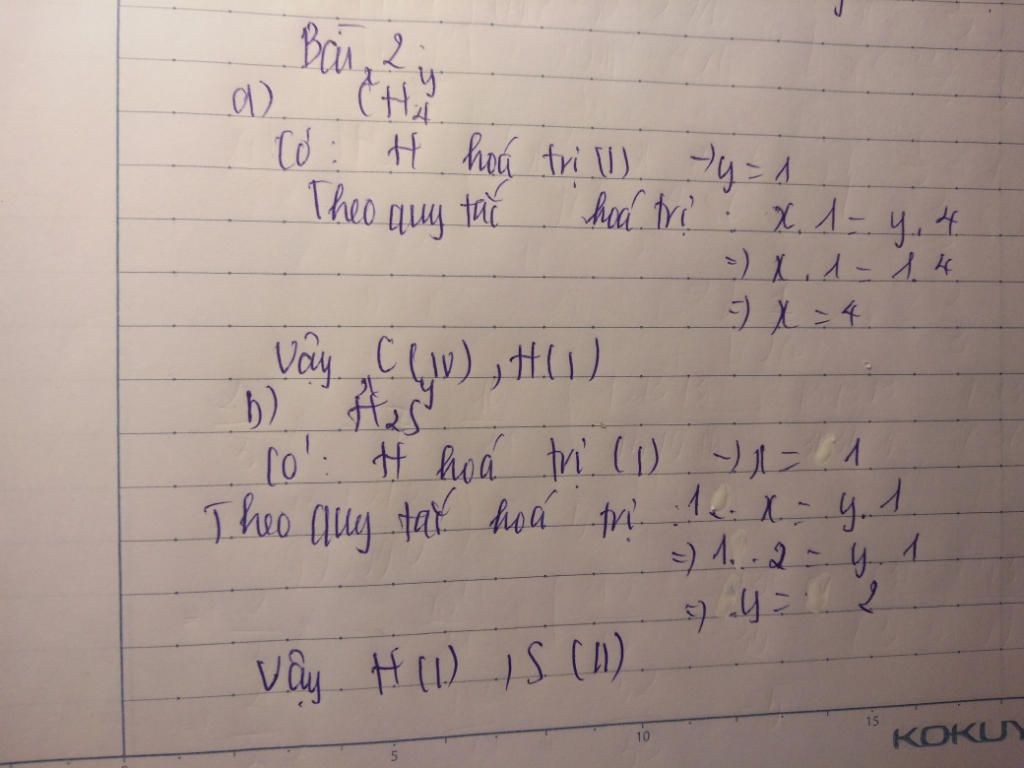 Bài 2
x y
a) CH4
Có: H hoá trị (I) → y = 1
Theo quy tắc hoá trị: x. 1 = y. 4
=) x. 1 = 1. 4
=) x = 4
Vậy C (IV), H (I)
x y
b) H2S
Có: H hoá trị (I) → x = 1
Theo quy tắc hoá trị: 1. x = y. 1
=) 1. 2 = y. 1
=) y = 2
Vậy H (I), S (II)
5 10 15 KOKUY